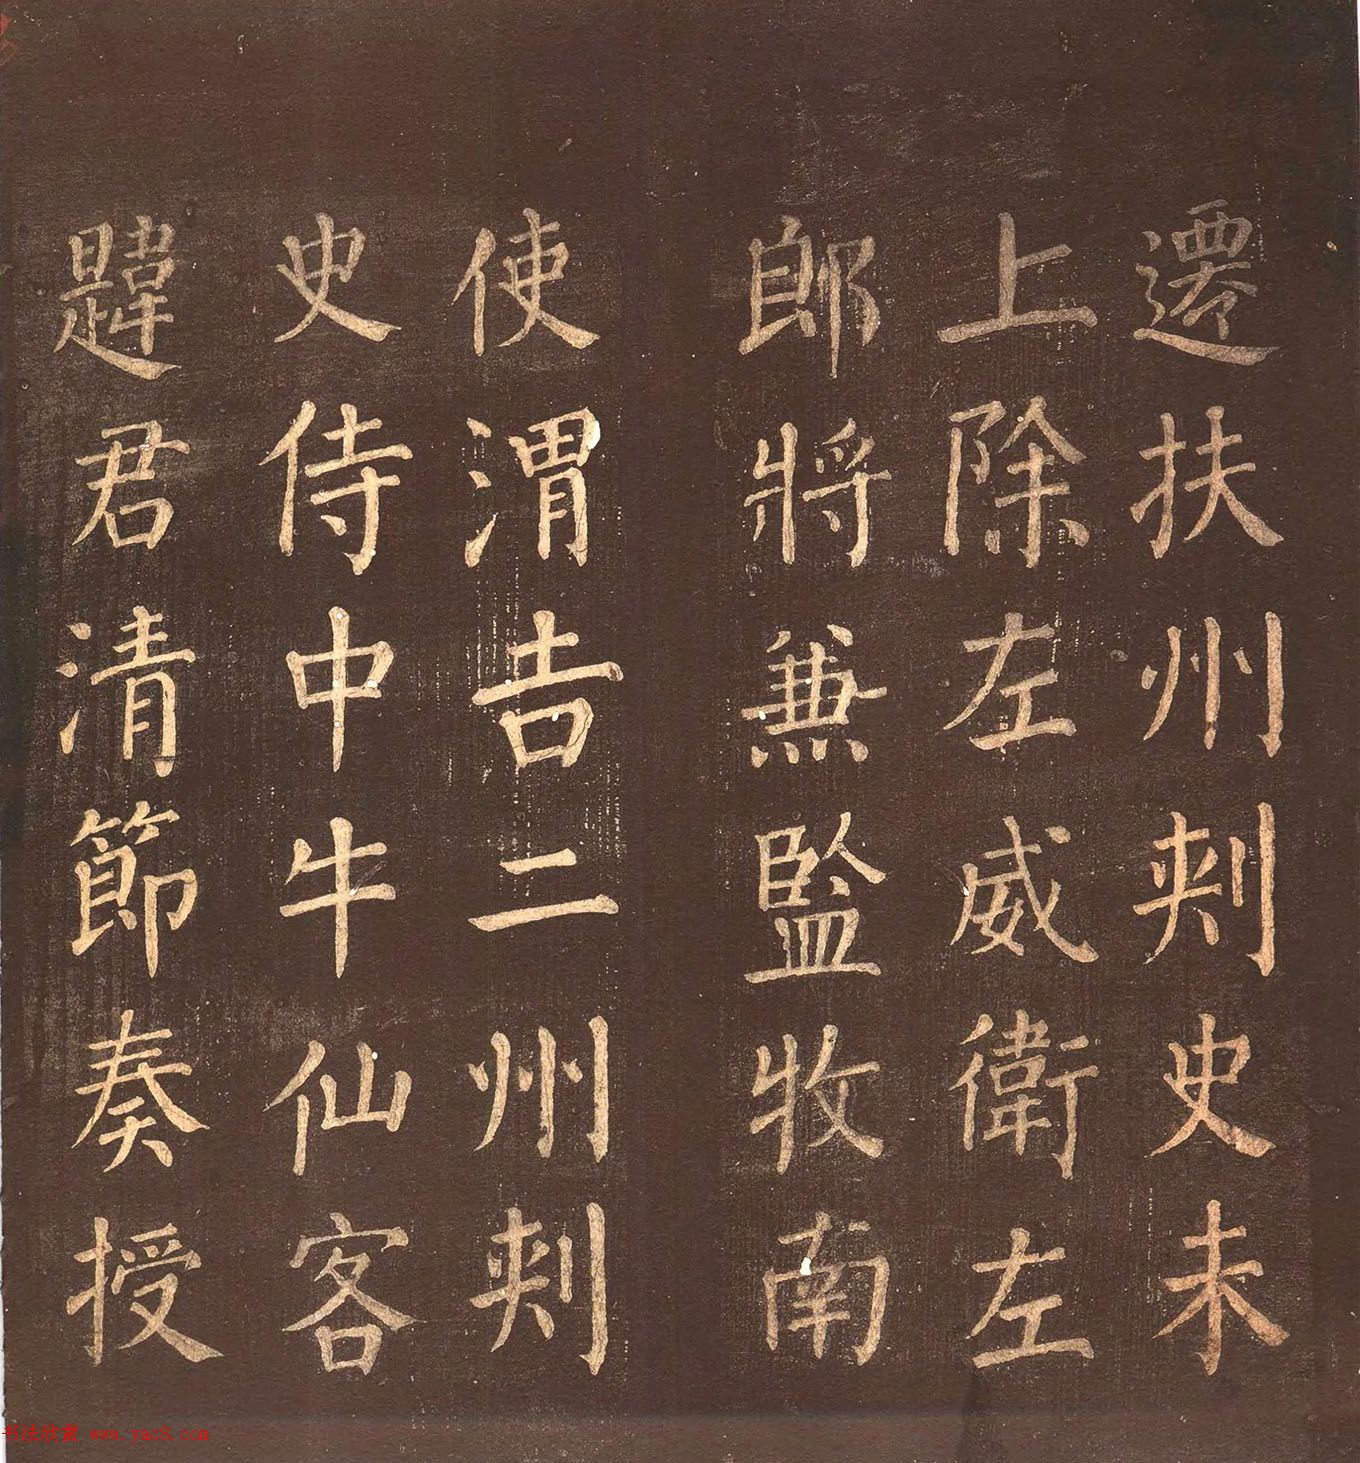 遷扶州刺史未
上除左威衛左
郎將兼監牧南
使渭吉二州刺
史侍中牛仙客
韙君清節奏授
书法欣赏 www.yac8.com